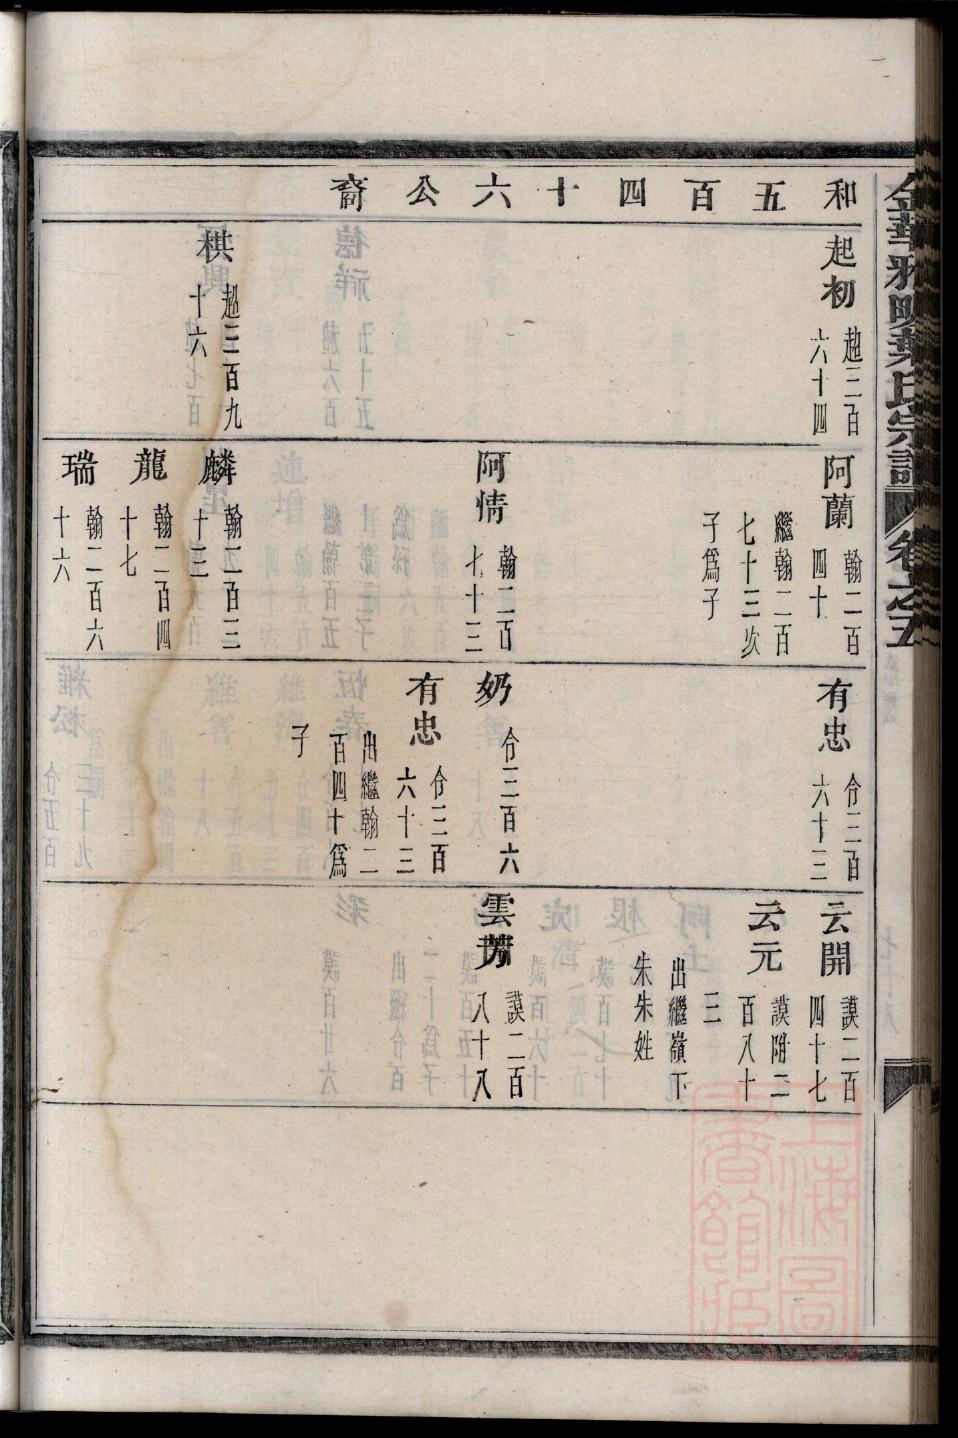 金華雅畈葉氏宗譜
卷之五
和五百四十六公裔
起初
趙三百
六十四
棋
趙三百九
十六
阿蘭
翰二百
四十
繼翰二百
七十三次
子爲子
阿情
翰二百
七十三
麟
翰二百三
十三
龍
翰二百四
十七
瑞
翰二百六
十六
有忠
令三百
六十三
奶
令三百六
有忠
令三百
六十三
出繼翰二
百四十爲
子
云開
謨二百
四十七
云元
謨附二
百八十
三
出繼嶺下
朱朱姓
雲芳
謨二百
八十八
上海圖
書館藏